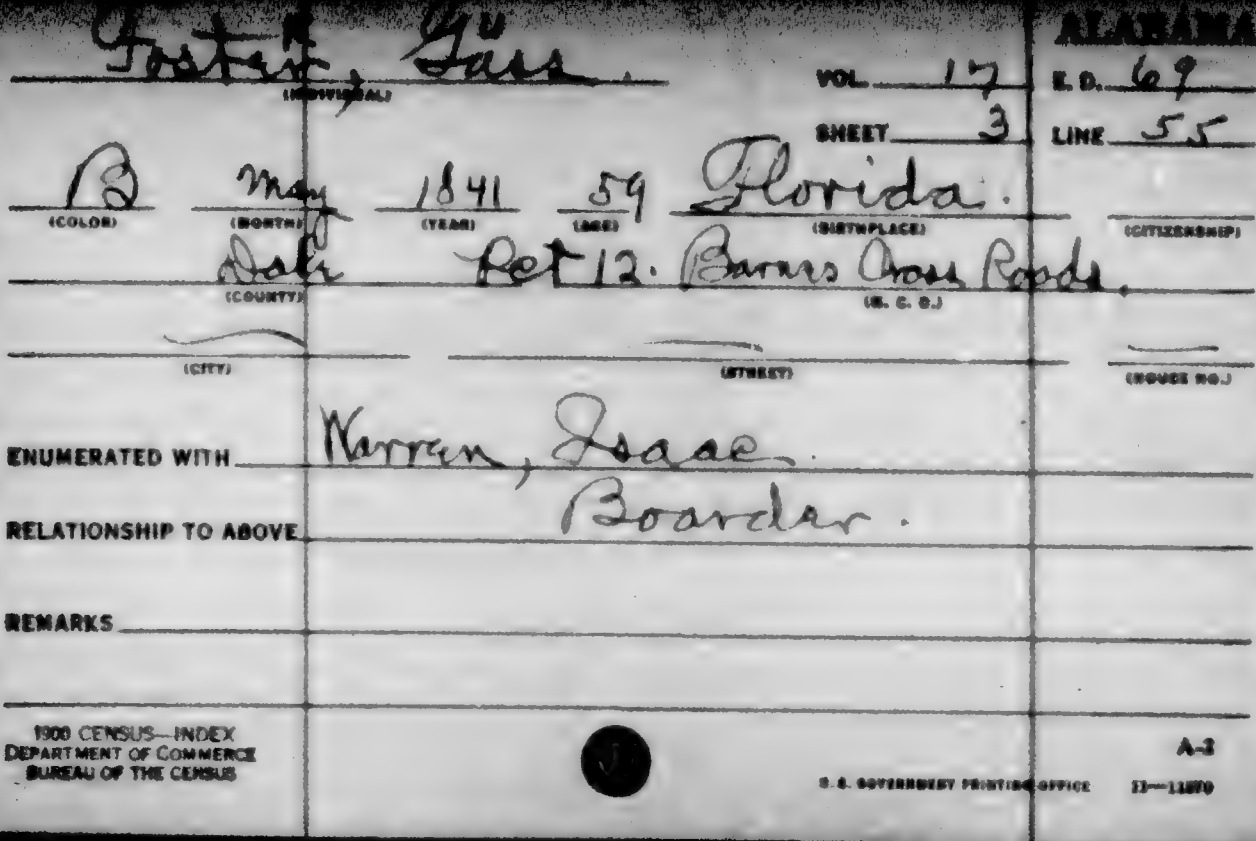 ALABAMA
Foster, Gass.
(INDIVIDUAL)
VOL. 17 E. D. 69
SHEET 3 LINE 55
B May 1841 59 Florida.
(COLOR) (MONTH) (YEAR) (AGE) (BIRTHPLACE) (CITIZENSHIP)
Dale Pct 12. Barnes Cross Roads.
(COUNTY) (M. C. D.)
(CITY) (STREET) (HOUSE NO.)
ENUMERATED WITH Warren, Isaac.
RELATIONSHIP TO ABOVE Boarder.
REMARKS
1900 CENSUS—INDEX
DEPARTMENT OF COMMERCE
BUREAU OF THE CENSUS
A-2
U. S. GOVERNMENT PRINTING OFFICE 11—11870